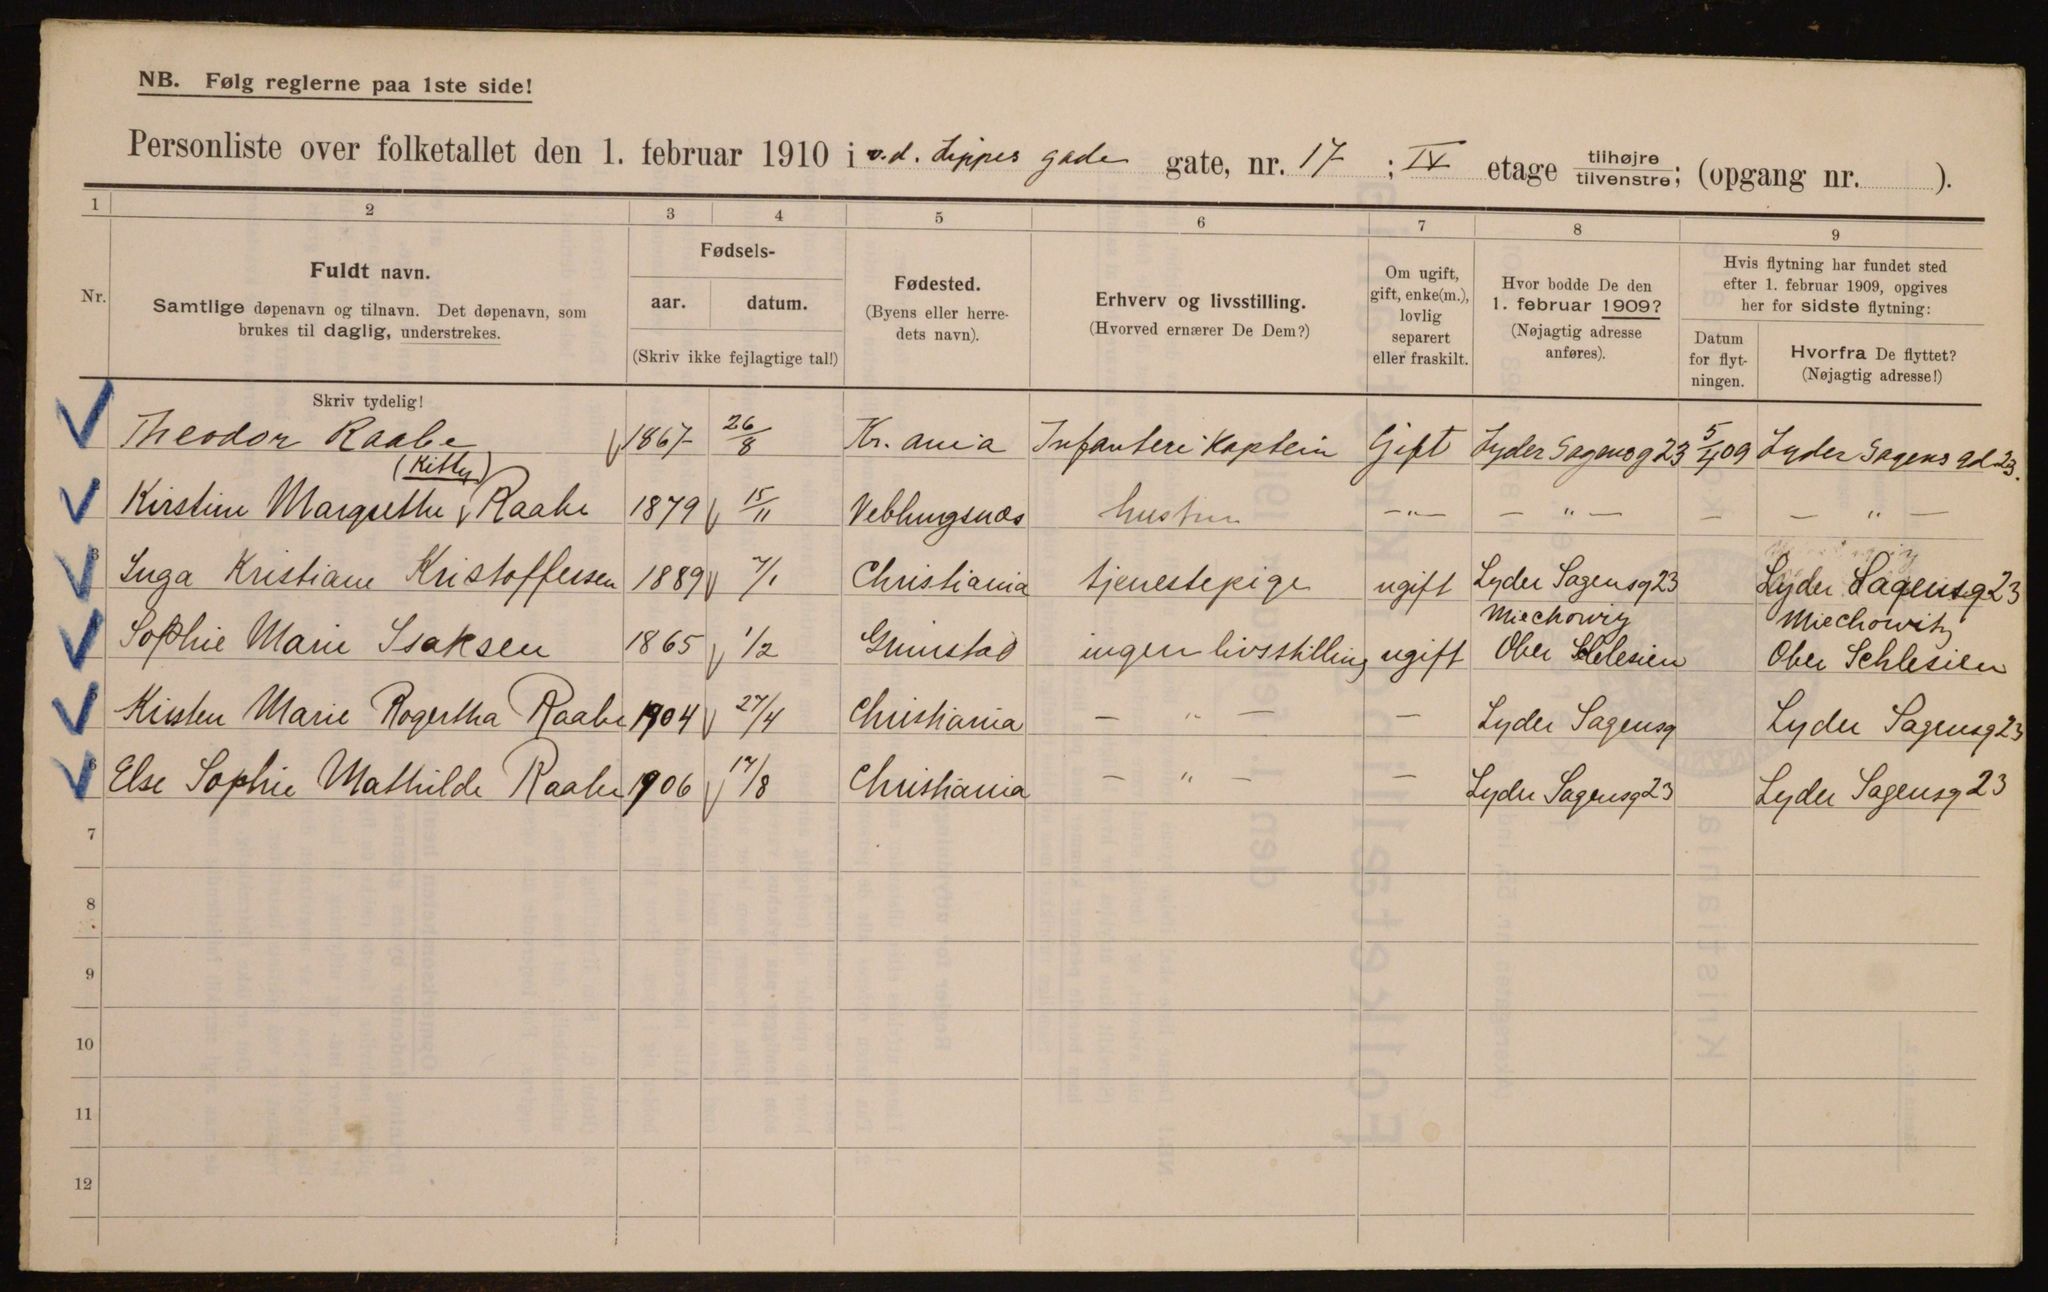 NB. Følg reglerne paa 1ste side!
Personliste over folketallet den 1. februar 1910 i v.d. Lippes gade gate, nr. 17 ; IV etage tilhøjre tilvenstre; (opgang nr. ).
1 2 3 4 5 6 7 8 9
Nr.
Fuldt navn.
Samtlige døpenavn og tilnavn. Det døpenavn, som
brukes til daglig, understrekes.
Skriv tydelig!
Fødsels-
aar. datum.
(Skriv ikke fejlagtige tal!)
Fødested.
(Byens eller herre-
dets navn).
Erhverv og livsstilling.
(Hvorved ernærer De Dem?)
Om ugift,
gift, enke(m.),
lovlig
separert
eller fraskilt.
Hvor bodde De den
1. februar 1909?
(Nøjagtig adresse
anføres).
Hvis flytning har fundet sted
efter 1. februar 1909, opgives
her for sidste flytning:
Datum
for flyt-
ningen.
Hvorfra De flyttet?
(Nøjagtig adresse!)
Theodor Raabe 1867 26/8 Kr. ania Infanteri Kaptein Gift Lyder Sagensg 23 5/4 09 Lyder Sagens gd 23.
(Kitty)
Kirstine Margrethe Raabe 1879 15/11 Veblungsnæs hustru — " — — " — — — " —
3 Inga Kristiane Kristoffersen 1889 7/1 Christiania tjenestepige ugift Lyder Sagensg 23 Lyder Sagensg 23
Miechowiz Miechowitz
Sophie Marie Isaksen 1865 1/2 Grimstad ingen livsstilling ugift Ober Schlesien Ober Schlesien
Kirsten Marie Rogertha Raabe 1904 27/4 Christiania — " — — Lyder Sagensg Lyder Sagensg 23
6 Else Sophie Mathilde Raabe 1906 17/8 Christiania — " — — Lyder Sagensg 23 Lyder Sagensg 23
7
8
9
10
11
12